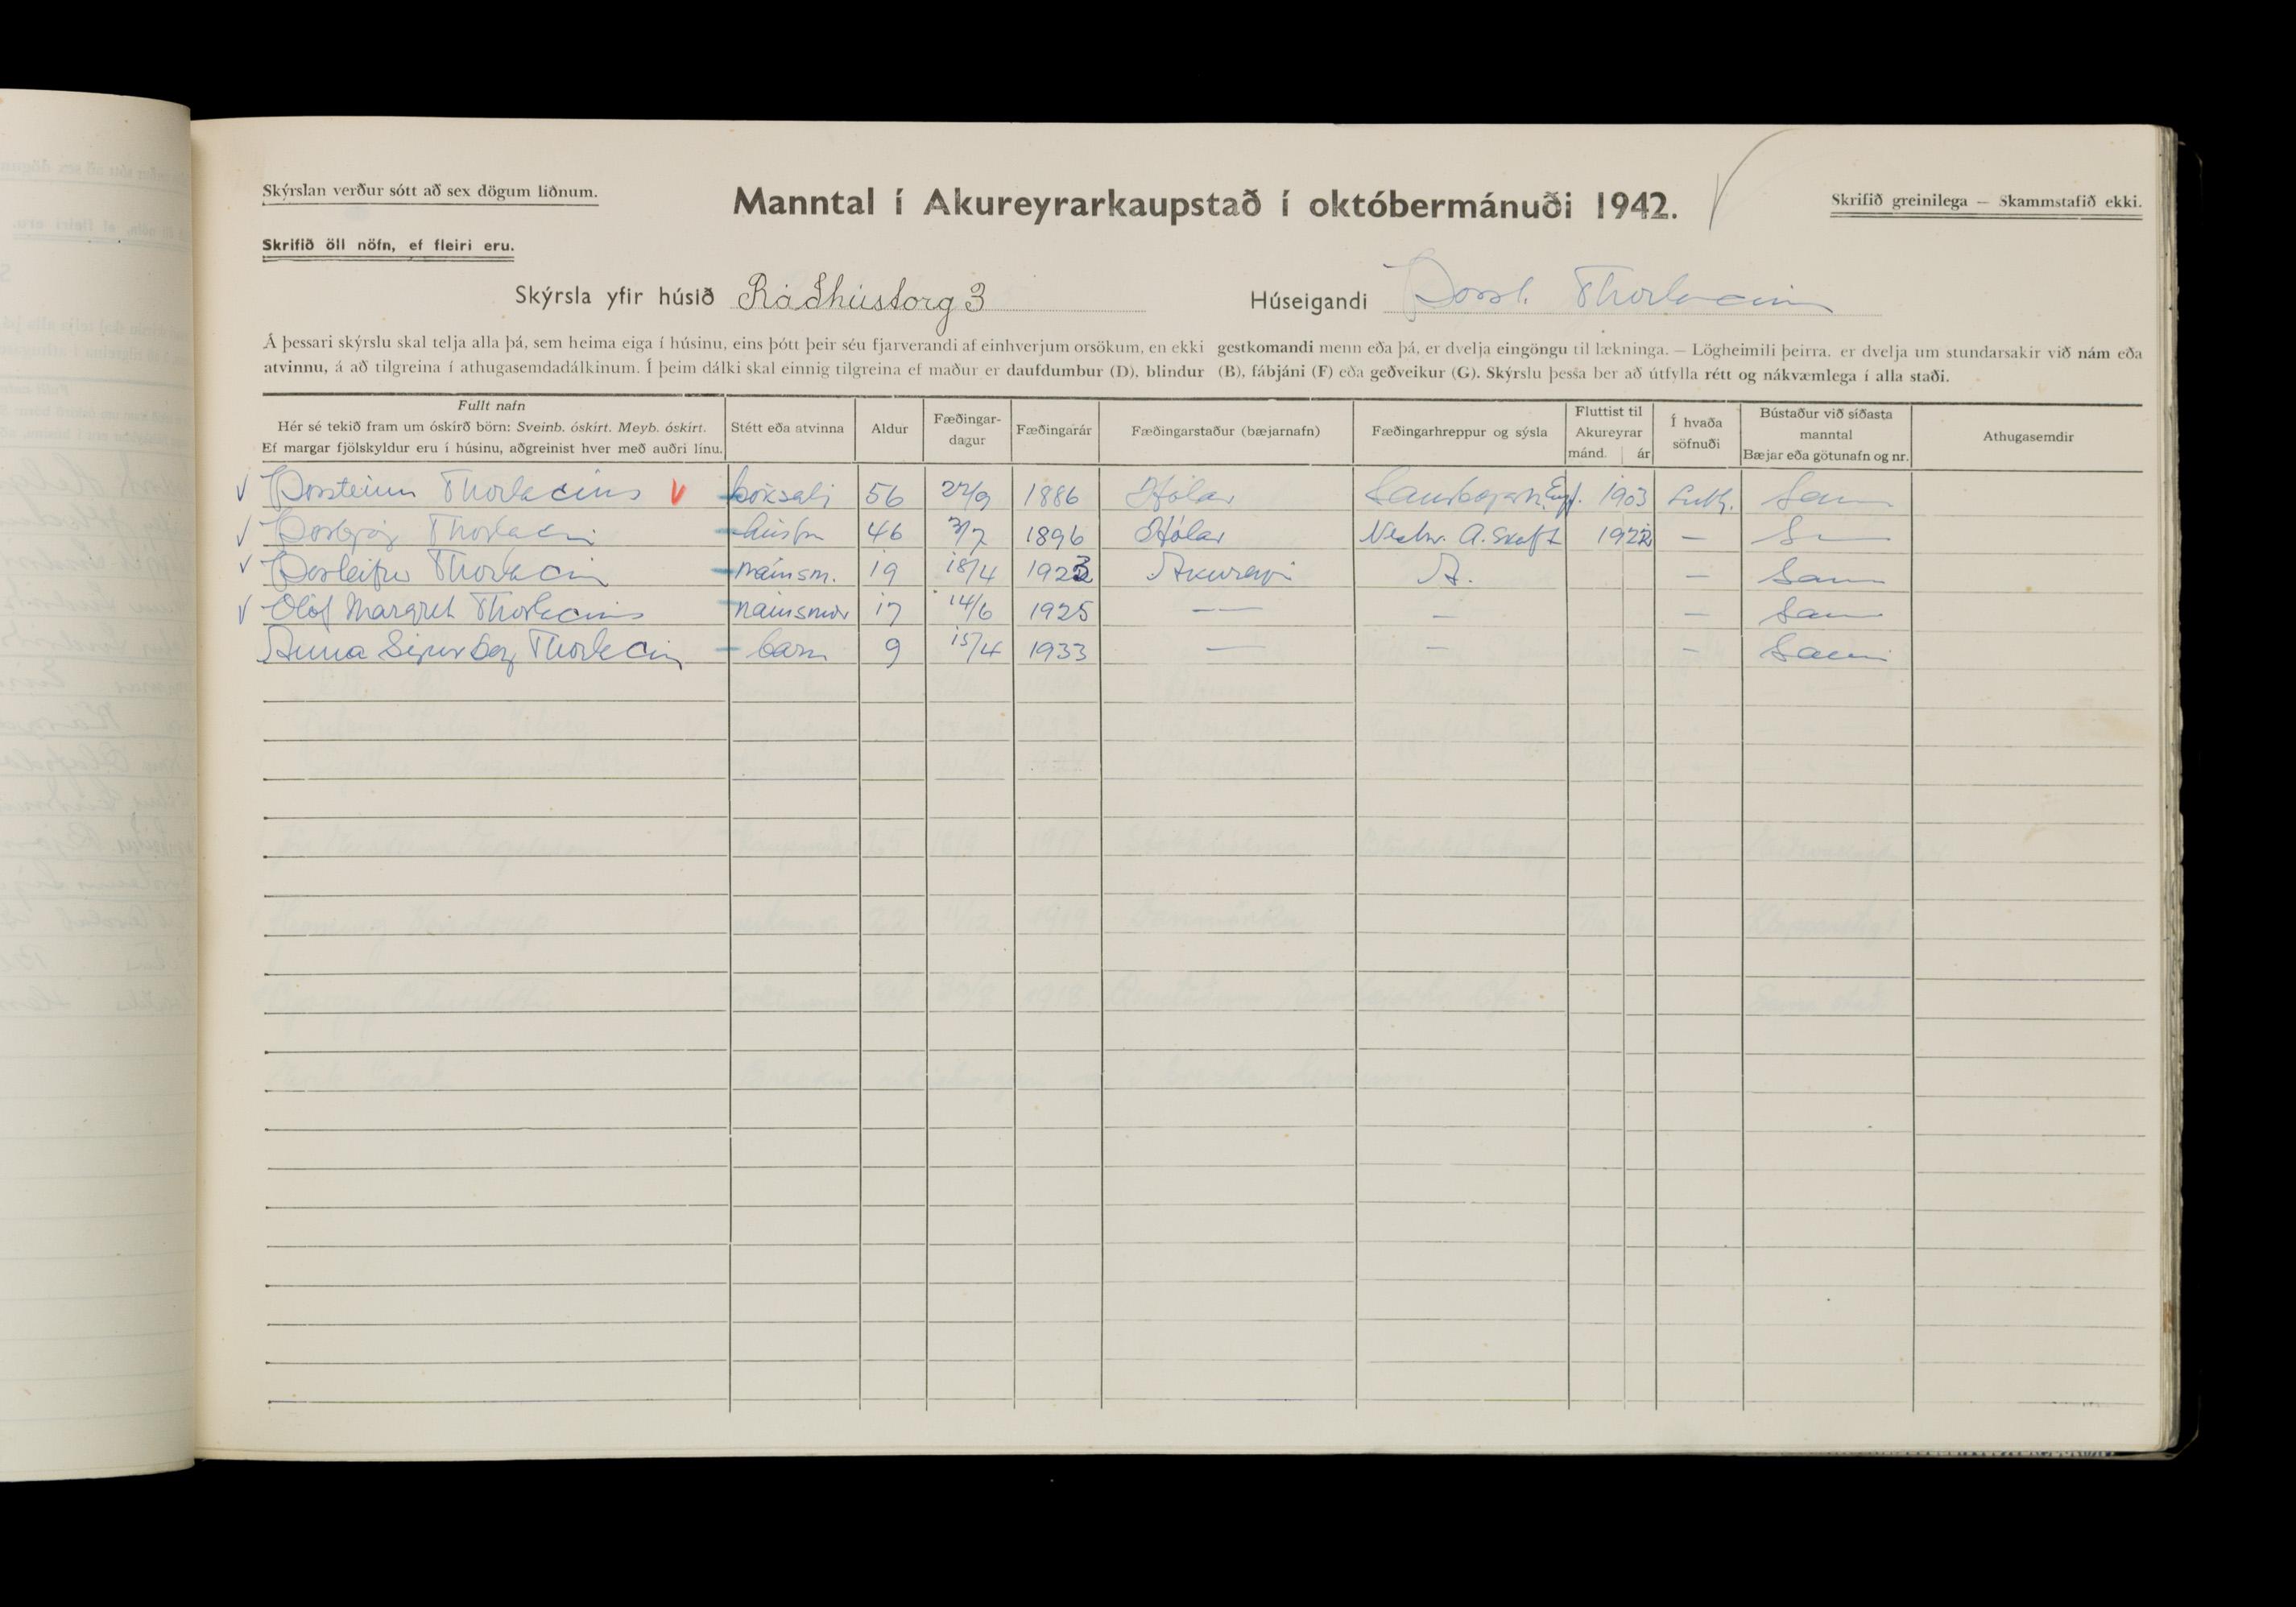 Skýrslan verður sótt að sex dögum liðnum.
Manntal í Akureyrarkaupstað í októbermánuði 1942.
Skrifið greinilega — Skammstafið ekki.
Skrifið öll nöfn, ef fleiri eru.
Skýrsla yfir húsið Ráðhústorg 3 Húseigandi Þorst. Thorlacius
Á þessari skýrslu skal telja alla þá, sem heima eiga í húsinu, eins þótt þeir séu fjarverandi af einhverjum orsökum, en ekki gestkomandi menn eða þá, er dvelja eingöngu til lækninga. — Lögheimili þeirra, er dvelja um stundarsakir við nám eða
atvinnu, á að tilgreina í athugasemdadálkinum. Í þeim dálki skal einnig tilgreina ef maður er daufdumbur (D), blindur (B), fábjáni (F) eða geðveikur (G). Skýrslu þessa ber að útfylla rétt og nákvæmlega í alla staði.
Fullt nafn
Hér sé tekið fram um óskírð börn: Sveinb. óskírt. Meyb. óskírt.
Ef margar fjölskyldur eru í húsinu, aðgreinist hver með auðri línu.
Stétt eða atvinna
Aldur
Fæðingar-
dagur
Fæðingarár
Fæðingarstaður (bæjarnafn)
Fæðingarhreppur og sýsla
Fluttist til
Akureyrar
mánd. ár
Í hvaða
söfnuði
Bústaður við síðasta
manntal
Bæjar eða götunafn og nr.
Athugasemdir
V Þorsteinn Thorlacius V bóksali 56 22/9 1886 Hólar 1903 Luth. Sam
V Þorbjörg Thorlacius húsfr 46 3/7 1896 Hólar Neshr. A. Skaft 1922 —
V Þorleifur Thorlacius námsm. 19 18/4 1923 Akureyri A. — Sam
V Ólöf Margrét Thorlacius námsmær 17 14/6 1925 — — — Sam
Anna Sigurborg Thorlacius barn 9 15/4 1933 — — — Sami